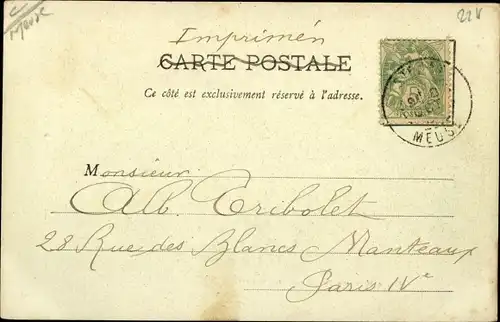 Meuse
22k
Imprimén
CARTE POSTALE
Ce côté est exclusivement réservé à l'adresse.
MEUS
Monsieur
Alb. Tribolet
28 Rue des Blancs Manteaux
Paris IVe